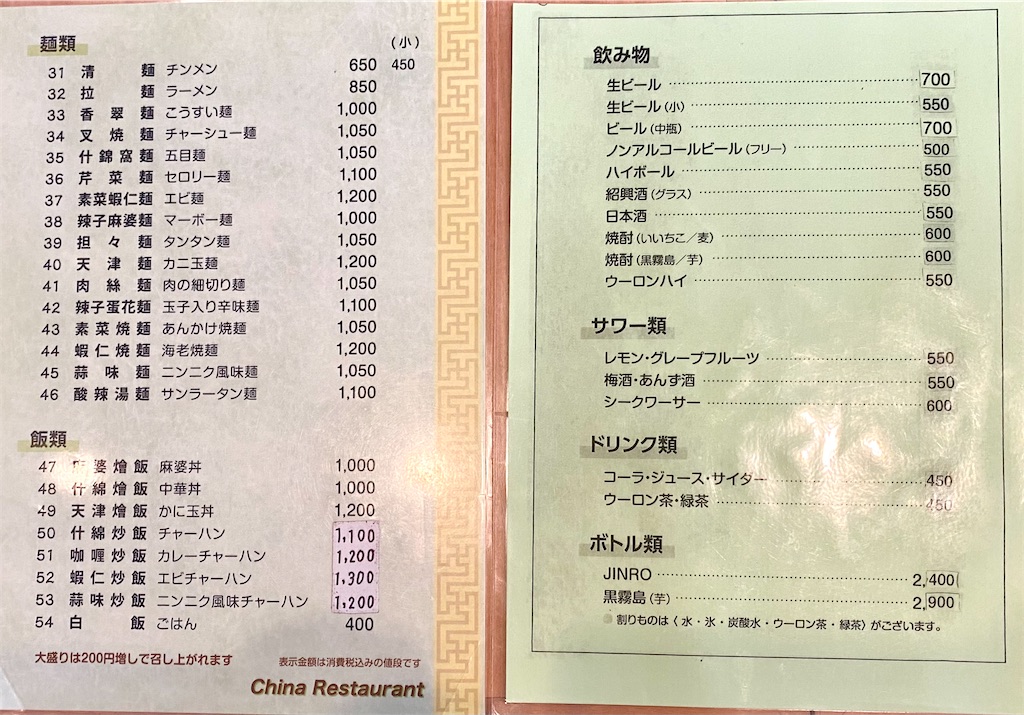 麺類 (小)
31 清麺 チンメン 650 450
32 拉麺 ラーメン 850
33 香翠麺 こうすい麺 1,000
34 叉焼麺 チャーシュー麺 1,050
35 什錦窩麺 五目麺 1,050
36 芹菜麺 セロリー麺 1,100
37 素菜蝦仁麺 エビ麺 1,200
38 辣子麻婆麺 マーボー麺 1,000
39 担々麺 タンタン麺 1,050
40 天津麺 カニ玉麺 1,200
41 肉絲麺 肉の細切り麺 1,050
42 辣子蛋花麺 玉子入り辛味麺 1,100
43 素菜焼麺 あんかけ焼麺 1,050
44 蝦仁焼麺 海老焼麺 1,200
45 蒜味麺 ニンニク風味麺 1,050
46 酸辣湯麺 サンラータン麺 1,100
飯類
47 婆燴飯 麻婆丼 1,000
48 什綿燴飯 中華丼 1,000
49 天津燴飯 かに玉丼 1,200
50 什綿炒飯 チャーハン 1,100
51 咖喱炒飯 カレーチャーハン 1,200
52 蝦仁炒飯 エビチャーハン 1,300
53 蒜味炒飯 ニンニク風味チャーハン 1,200
54 白飯 ごはん 400
大盛りは200円増しで召し上がれます 表示金額は消費税込みの値段です
China Restaurant
飲み物
生ビール 700
生ビール(小) 550
ビール(中瓶) 700
ノンアルコールビール(フリー) 500
ハイボール 550
紹興酒(グラス) 550
日本酒 550
焼酎(いいちこ/麦) 600
焼酎(黒霧島/芋) 600
ウーロンハイ 550
サワー類
レモン・グレープフルーツ 550
梅酒・あんず酒 550
シークワーサー 600
ドリンク類
コーラ・ジュース・サイダー 450
ウーロン茶・緑茶 450
ボトル類
JINRO 2,400
黒霧島(芋) 2,900
割りものは〈水・氷・炭酸水・ウーロン茶・緑茶〉がございます。